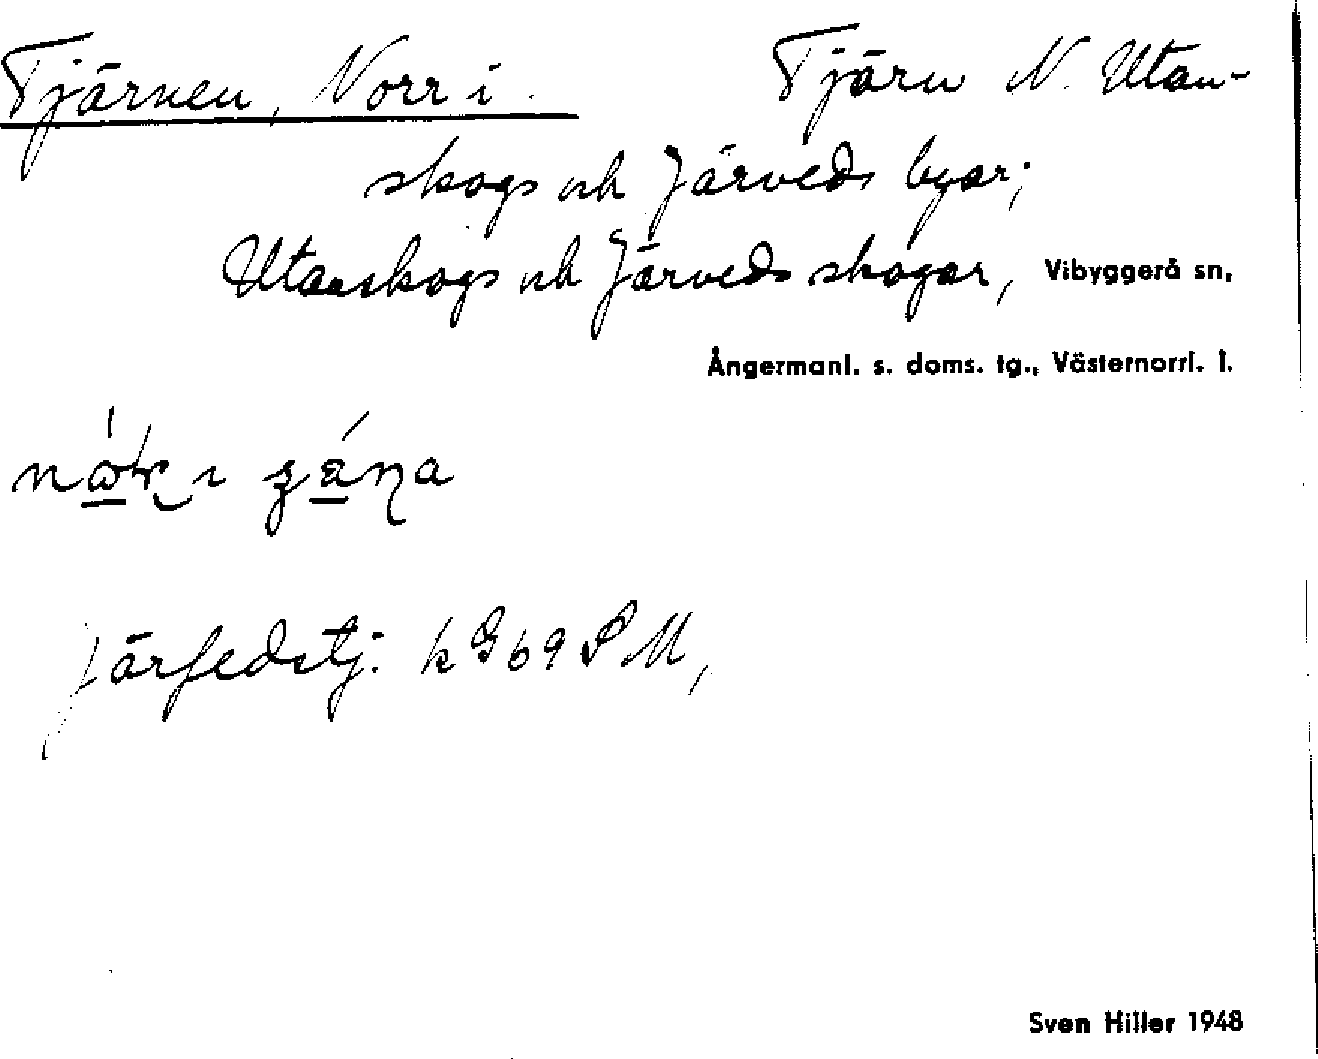 Tjärnen, Norr i. Tjärn N. Utan-
skogs och Järveds byar;
Utanskogs och Järveds skogar, Vibyggerå sn,
Ångermanl. s. doms. tg., Västernorrl. l.
Järfedstj. k G 69 S M,
Sven Hiller 1948